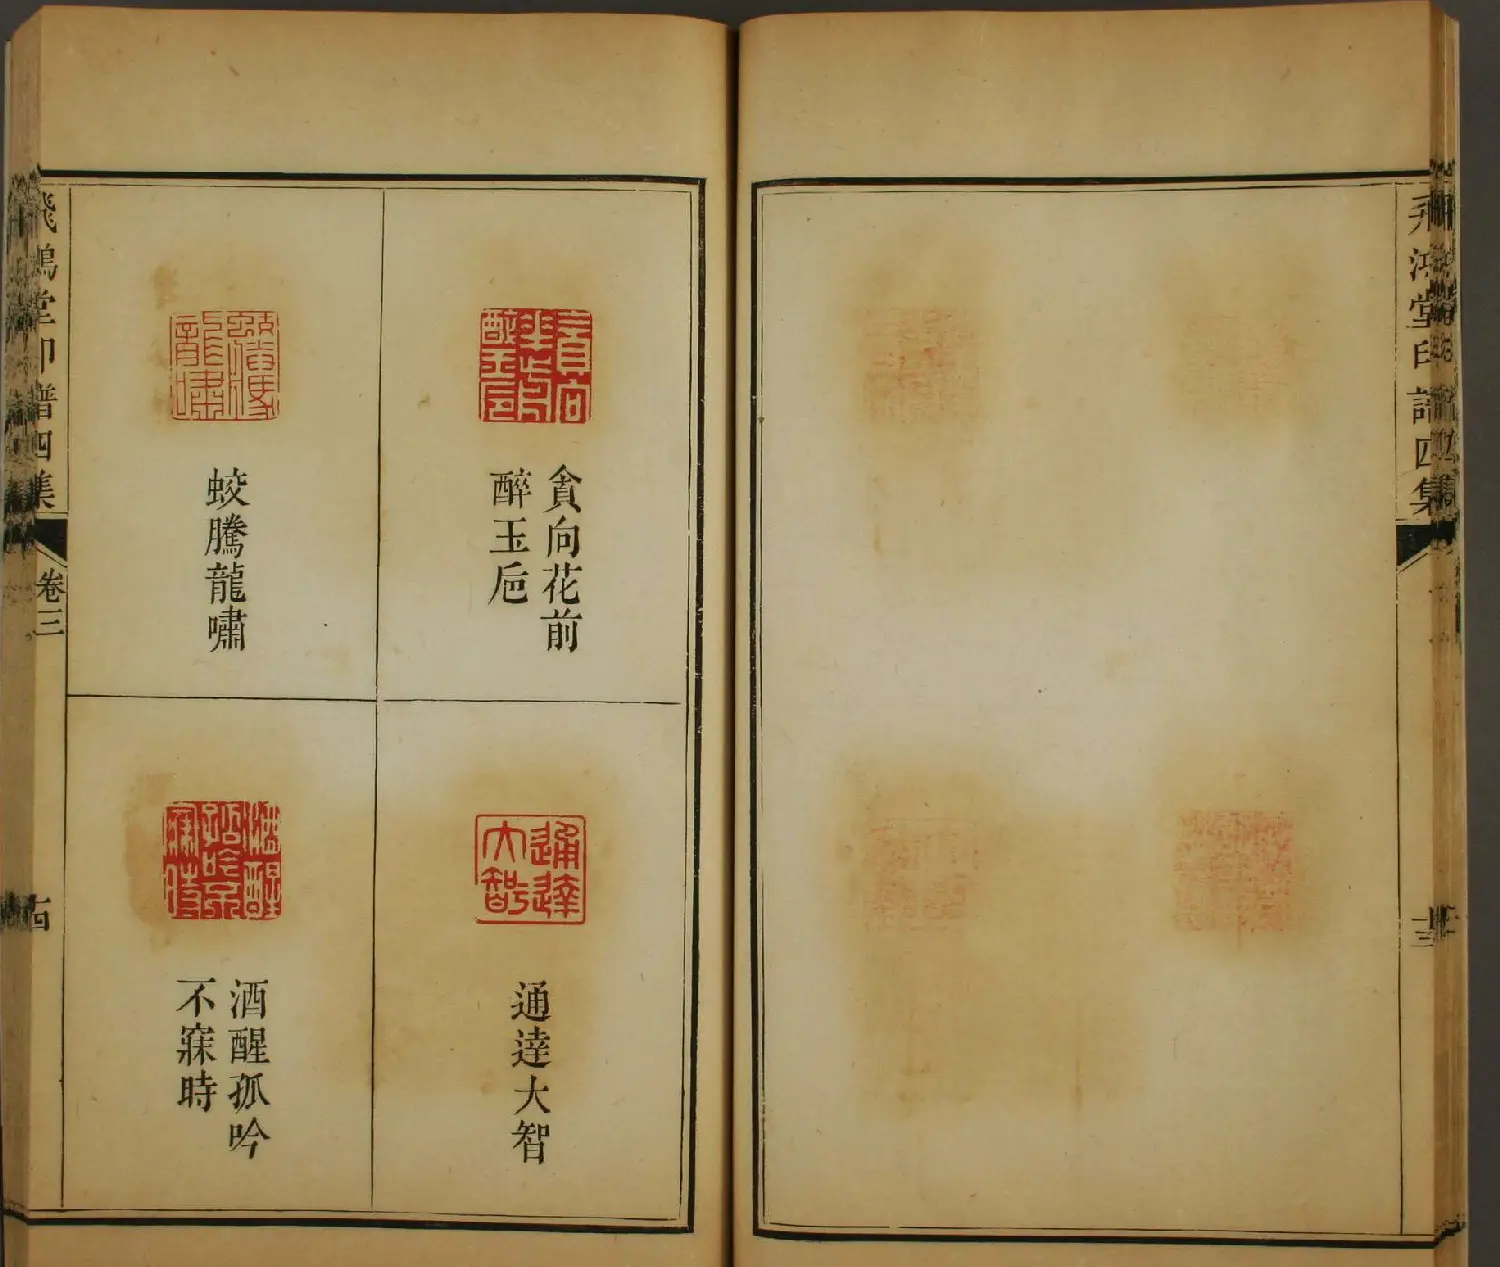 飛鴻堂印譜四集
十三
貪向花前
醉玉卮
通達大智
蛟騰龍嘯
酒醒孤吟
不寐時
飛鴻堂印譜四集
卷三
十四